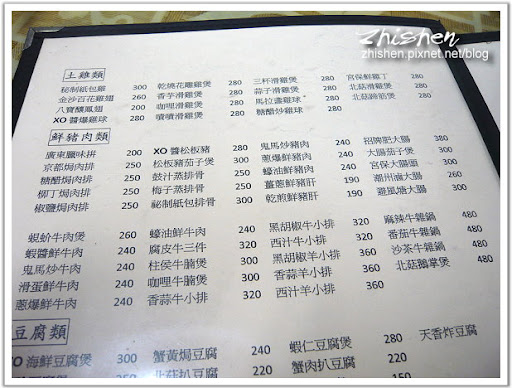 Zhishen
zhishen.pixnet.net/blog
土雞類
秘制紙包雞 300 乾燒花雕雞煲 280 三杯滑雞煲 280 宮保鮮雞丁 280
金沙百花雞翅 240 香芋滑雞煲 280 蒜子滑雞煲 280 北菇滑雞煲 280
八寶釀鳳翅 240 咖哩滑雞煲 280 馬拉盞雞球 280
XO醬爆雞球 280 嘖嘖滑雞煲 280 糖醋炒雞球 280
鮮豬肉類
廣東臘味拼 200 XO醬松板豬 280 鬼馬炒豬肉 240 招牌肥大腸 380
京都焗肉排 250 松板豬茄子煲 280 蔥爆鮮豬肉 240 大腸茄子煲 300
糖醋焗肉排 250 鼓汁蒸排骨 250 蠔油鮮豬肉 240 宮保大腸頭 300
橙汁焗肉排 250 梅子蒸排骨 250 薑蔥鮮豬肝 190 潮州滷大腸 360
椒鹽焗肉排 250 祕制紙包排骨 300 乾煎鮮豬肝 190 避風塘大腸 300
蜆蚧牛肉煲 260 蠔油鮮牛肉 240 黑胡椒牛小排 320 麻辣牛雜鍋 480
蝦醬鮮牛肉 240 腐皮牛三件 240 西汁牛小排 320 番茄牛雜鍋 480
鬼馬炒牛肉 240 柱侯牛腩煲 240 黑胡椒羊小排 360 沙茶牛雜鍋 480
滑蛋鮮牛肉 240 咖哩牛腩煲 240 香蒜羊小排 360 北菇鵝掌煲 480
蔥爆鮮牛肉 240 香蒜牛小排 320 西汁羊小排 360
豆腐類
XO海鮮豆腐煲 300 蟹黃焗豆腐 240 蝦仁豆腐煲 280 天香炸豆腐
北菇扒豆腐 200 蟹肉扒豆腐 220